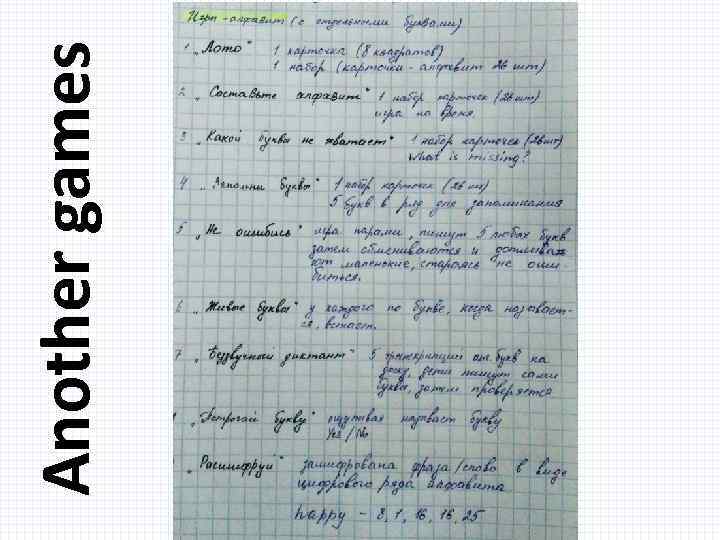 Another games
Игры - алфавит (с отдельными буквами)
1 „Лото" 1 карточка (8 квадратов)
1 набор (карточки - алфавит 26 шт)
2 „Составьте алфавит" 1 набор карточек (26 шт)
игра на время.
3 „Какой буквы не хватает" 1 набор карточек (26 шт)
What is missing?
4 „Заполни буквы" 1 набор карточек (26 шт)
5 букв в ряд для запоминания
5 „Не ошибись" игра парами, пишут 5 любых букв
затем обмениваются и
ют маленькие, стараясь не оши-
биться.
6 „Живые буквы" у каждого по букве, когда называет-
ся, встает.
7 „Беззвучный диктант" 5 транскрипций анг. букв на
доску, дети пишут сами
буквы, затем проверяется
„Потрогай букву" ощупывая называет букву
Yes / No
„Расшифруй" зашифрована фраза / слово в виде
цифрового ряда алфавита
happy - 8, 1, 16, 16, 25